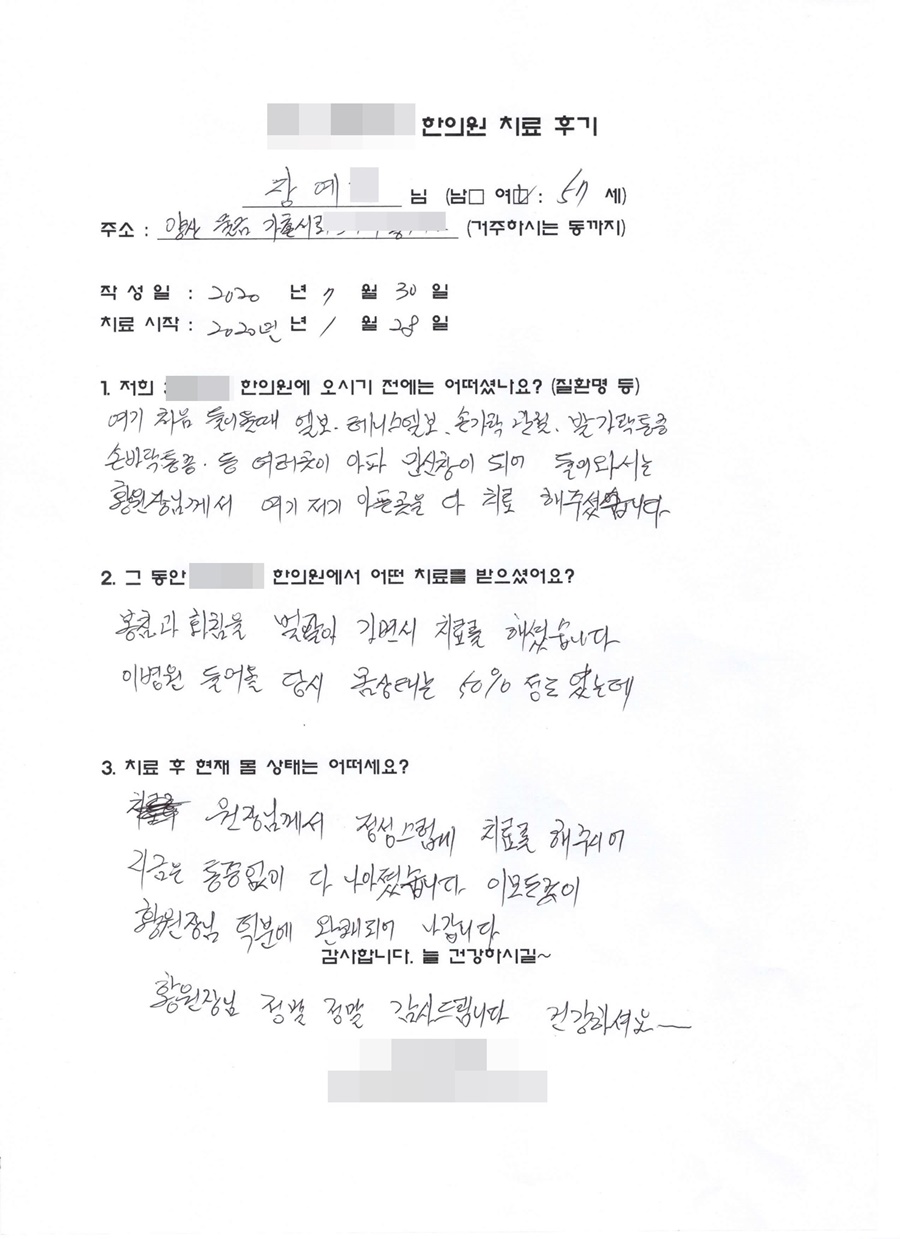 한의원 치료 후기
장예 님 (남□ 여☑ : 57 세)
주소 : 양산 물금 가촌서로 (거주하시는 동까지)
작성일 : 2020 년 7 월 30 일
치료 시작 : 2020년 년 1 월 28 일
1. 저희 한의원에 오시기 전에는 어떠셨나요? (질환명 등)
여기 처음 들어올때 엘보. 테니스엘보. 손가락 관절. 발가락통증
손바닥통증. 등 여러곳이 아파 만신창이 되어 들어와서는
황원장님께서 여기 저기 아픈곳을 다 치료 해주셨습니다.
2. 그 동안 한의원에서 어떤 치료를 받으셨어요?
봉침과 화침을 번갈아 치료를 해셨습니다
이병원 들어올 당시 몸상태는 50% 정도 였는데
3. 치료 후 현재 몸 상태는 어떠세요?
원장님께서 정성스럽게 치료를 해주시어
지금은 통증없이 다 나아졌습니다. 이모든것이
황원장님 덕분에 완쾌되어 나갑니다
감사합니다. 늘 건강하시길~
황원장님 정말 정말 감사드립니다 건강하셔요~